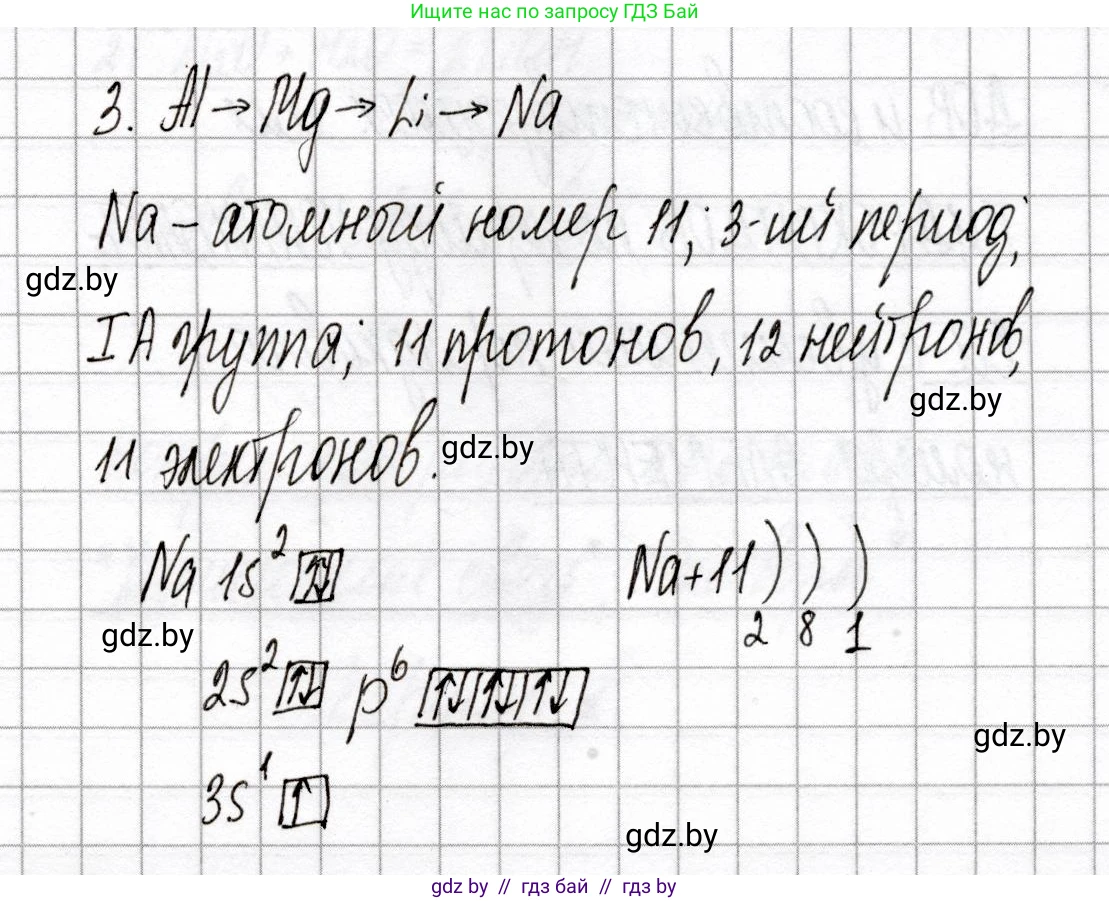 Ищите нас по запросу ГДЗ Бай
3. Al → Mg → Li → Na
Na – атомный номер 11; 3-ий период;
gdz.by
IA группа; 11 протонов, 12 нейтронов,
gdz.by
11 электронов.
gdz.by
Na 1s² ↑↓ Na+11 ) ) )
gdz.by
2 8 1
2s² ↑↓ p⁶ ↑↓ ↑↓ ↑↓
gdz.by
3s¹ ↑
gdz.by
gdz by // гдз бай // гдз by